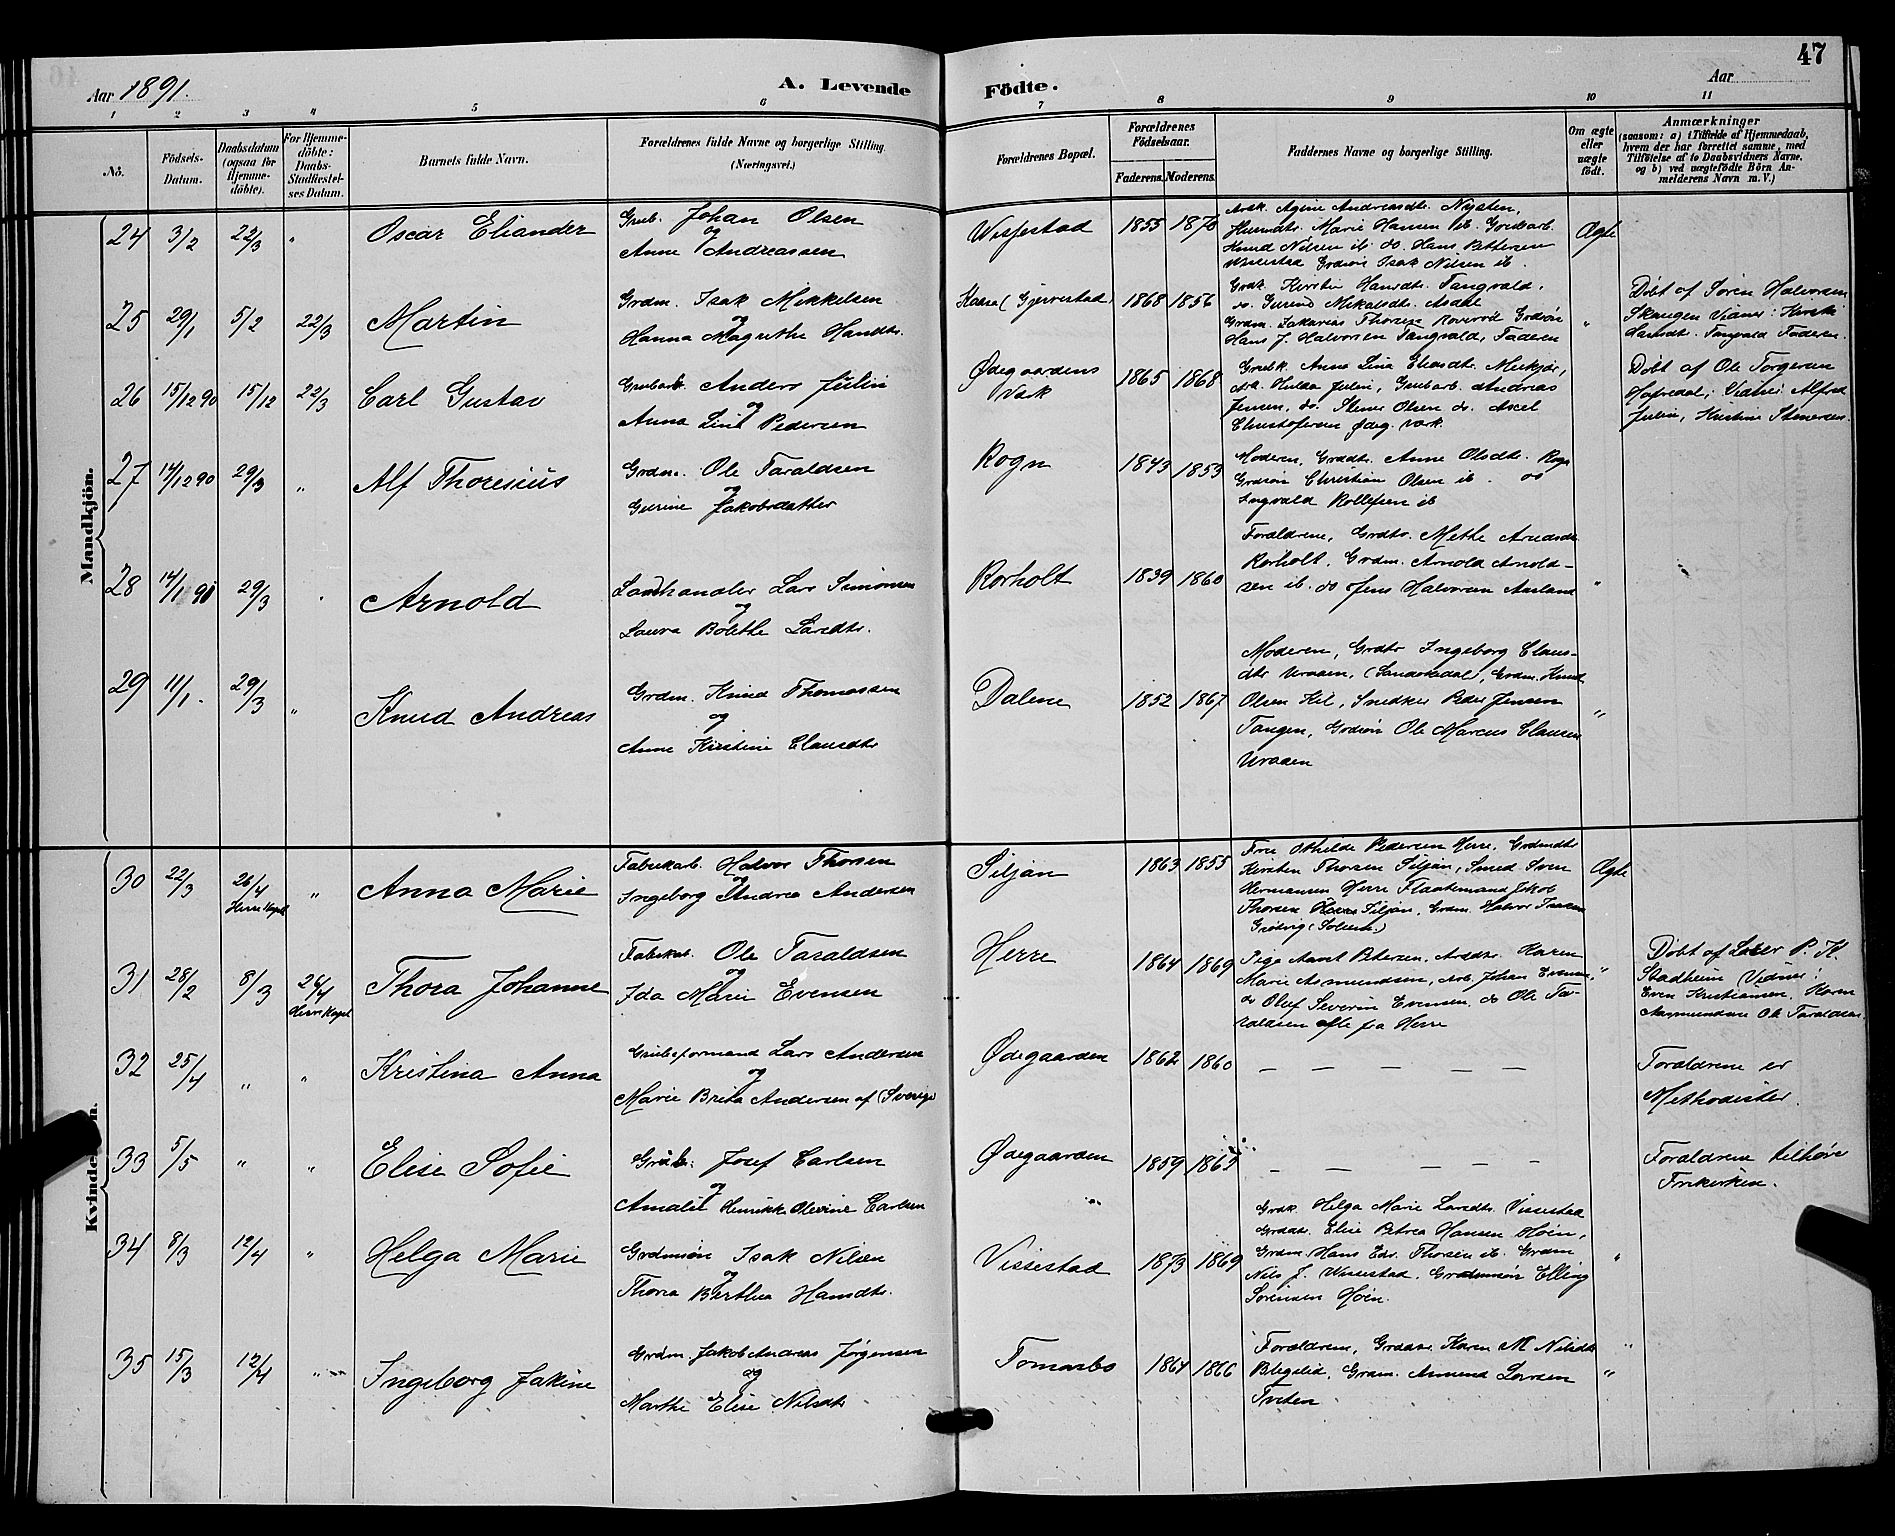 47
Aar 1891.
A. Levende Födte.
Aar
1 2 3 4 5 6 7 8 9 10 11
No.
Födsels-Datum.
Daabsdatum (ogsaa for Hjemme-döbte).
For Hjemme-döbte: Daabs-Stadfæstel-ses Datum.
Barnets fulde Navn.
Forældrenes fulde Navne og borgerlige Stilling (Næringsvei.)
Forældrenes Bopæl.
Forældrenes Födselsaar.
Faderens. Moderens.
Faddernes Navne og borgerlige Stilling.
Om ægte eller uægte födt.
Anmærkninger
(saasom: a) i Tilfælde af Hjemmedaab,
hvem der har forrettet samme, med
Tilföielse af to Daabsvidners Navne,
og b) ved uægtefödte Börn An-
melderens Navn m. V.)
Mandkjön.
24 3/2 22/3 "
Oscar Eliander
Grub. Johan Olsen
og
Anne Andreassen
Wissestad 1855 1870
Arsk. Agine Andreasdt. Nysten,
Husmdtr. Marie Hansen ib. Grubarb.
Knud Nilsen ib. do. Hans Pettersen
Wissestad Grdsøn Isak Nilsen ib.
Ægte
25 29/1 5/2 22/3
Martin
Grdm. Isak Mikkelsen
og
Hanna Magrethe Hansdtr.
Kaasa (Gjervestad) 1868 1856
Grdk. Kirstin Hansdt. Tangvald,
do. Gurind Mikalsdt. Asdal
Grdm. Zakarias Thorsen Roverod Grdsøn
Hans J. Halvorsen Tangvald, Faderen
"
Døbt af Søren Halvorsen
Skaugen Vidner: Kirsti
Hansdt. Tangvald Faderen.
26 15/12 90 15/12 22/3
Carl Gustav
Grubarb. Anders Julin
og
Anna Lina Pedersen
Ødegaardens
Værk
1865 1868
Grubk. Anna Lina Eliasdt.
Ark. Hulda Julin, Grubarb. Andreas
Jensen, do. Stener Olsen do. Axel
Christofersen Ødeg. Værk.
Døbt af Ole Torgersen
Hafredal, Vidner: Alfred
Julin, Kristine Stenersen.
27 14/12 90 29/3 "
Alf Thoresius
Grdm. Ole Taraldsen
og
Gurine Jakobsdatter
Rogn 1843 1853
Moderen, Grddt. Anne Olsdt. Rogn
Grdsøn Christian Olsen ib. do
Ingvald Rollefsen ib
28 14/1 91 29/3
Arnold
Landhandler Lars Simonsen
og
Laura Bolethe Larsdtr.
Rorholt 1839 1860
Forældrene, Grdtr. Methe Arnesdt
Rorholt. Grdm. Arnold Arnold-
sen ib. do Jens Halvorsen Aasland
"
29 11/1. 29/3 "
Knud Andreas
Grdm. Knud Thomassen
og
Anne Kirstine Clausdtr
Dalene 1852 1867
Moderen, Grdtr Ingeborg Claus-
dtr Uraaen, (Sandøkedal), Grdm. Knud
Olsen Kil, Snedker Peder Jensen
Tangen, Grdsøn Ole Marcus Clausen
Uraaen
"
30 22/3 26/4 Herre Kapel "
Anna Marie
Fabrikarb. Halvor Thorsen
og
Ingeborg Andrea Andersen
Siljan 1863 1855
Frue Othilde Pedersen Herre, Grdmdtr
Kirsten Thorsen Siljan, Smed Sven
Hermansen Herre Flaatemand Jakob
Thorsen Siljan, Grdm. Halvor Isaksen
Ægte
31 28/2 8/3 26/4 Herre Kapel
Thora Johanne
Fabrikarb. Ole Taraldsen
og
Ida Marie Evensen
Herre 1864 1869
Pige Petersen, Arbdtr. Karen
Marie Asmundsen, Arb. Johan Evensen
do Oluf Severin Evensen, do Ole Ta-
raldsen alle fra Herre
"
Døbt af Lærer P. K.
Stadheim (Vidner:
Even Kristiansen, Karen
Aasmundsen Ole Taraldsen.
32 25/4 " "
Kristina Anna
Grubeformand Lars Andersen
og
Marie Brita Andersen af (Sverige)
Ødegaarden 1862 1860
— — — — — —
Forældrene er
Methodister.
Kvinde
33 5/5 " "
Elise Sofie
Grub. Josef Carlsen
og
Amalie Henrikke Olevine Carlsen
Ødegaarden 1859
— — — — —
Forældrene tilhøre
Frikirken.
34 8/3 12/4 "
Helga Marie
Grdmsøn Isak Nilsen
og
Thora Berthea Hansdtr.
Vissestad 1873 1869
Grdk. Helga Marie Larsdtr. Vissestad
Grddtr. Elise Petrea Hansen Høen,
Grdm. Hans Edv. Thorsen ib. Grdm
Nils J. Wissestad, Grdmsøn Elling
Sørensen Høen.
"
35 15/3 12/4 "
Ingeborg Jakine
Grdm. Jakob Andreas Jørgensen
og
Marthe Elise Nilsdtr
Tomasbo 1864 1866
Forældrene, Grddtr. Karen M Nilsdtr
Blegelid, Grdm. Amund Larsen
Tveten
"